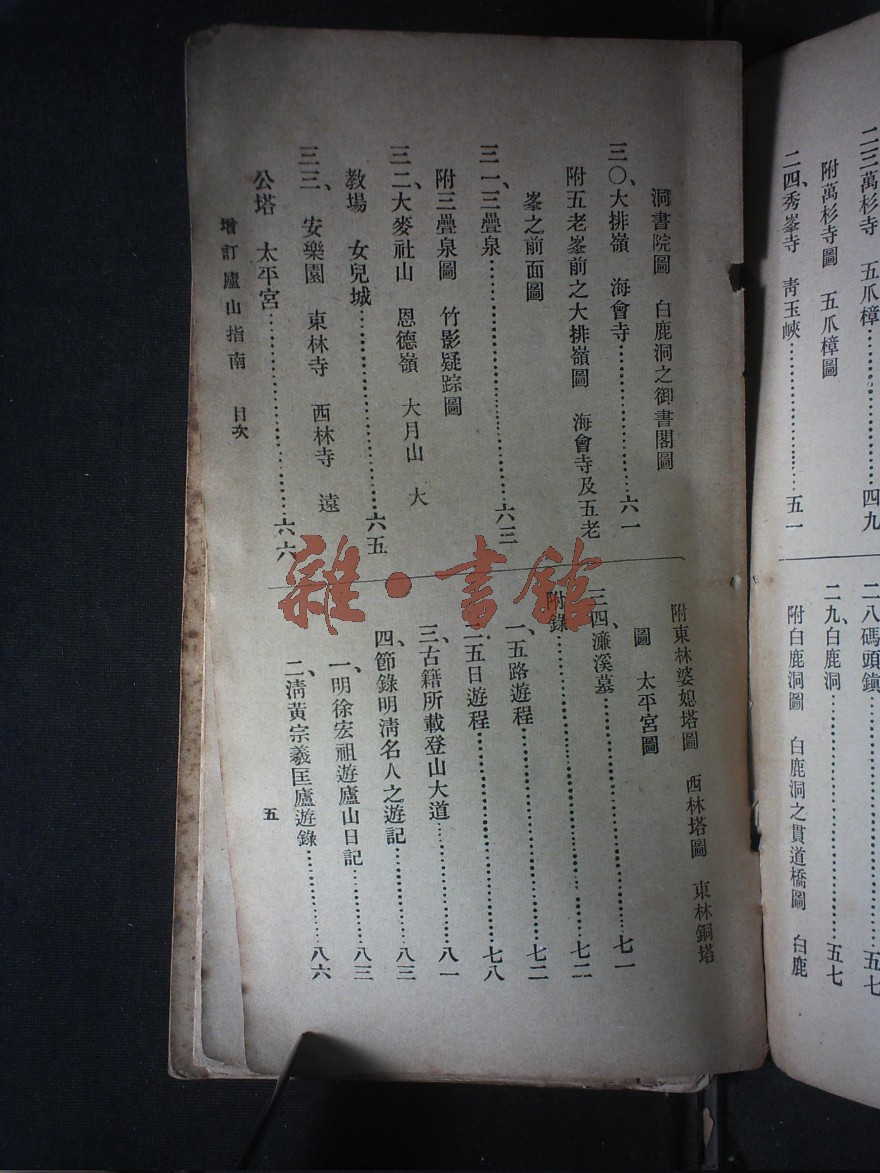 二三萬杉寺　五爪樟……四九
附萬杉寺圖　五爪樟圖
二四、秀峯寺　靑玉峽……五一
二八碼頭鎭……五七
二九白鹿洞……五七
附白鹿洞圖　白鹿洞之貫道橋圖　白鹿
洞書院圖　白鹿洞之御書閣圖
三〇、大排嶺　海會寺……六一
附五老峯前之大排嶺圖　海會寺及五老
峯之前面圖
三一、三疊泉……六三
附三疊泉圖　竹影疑踪圖
三二、大麥社山　恩德嶺　大月山　大
敎場　女兒城……六五
三三、安樂園　東林寺　西林寺　遠
公塔　太平宮……六六
附東林婆媳塔圖　西林塔圖　東林銅塔
圖　太平宮圖
三四、濂溪墓……七一
附錄……七二
一、五路遊程……七二
二、五日遊程……七八
三、古籍所載登山大道……八一
四、節錄明淸名人之遊記……八三
一、明徐宏祖遊廬山日記……八三
二、淸黃宗羲匡廬遊錄……八六
增訂廬山指南　目次
五
雜·書館